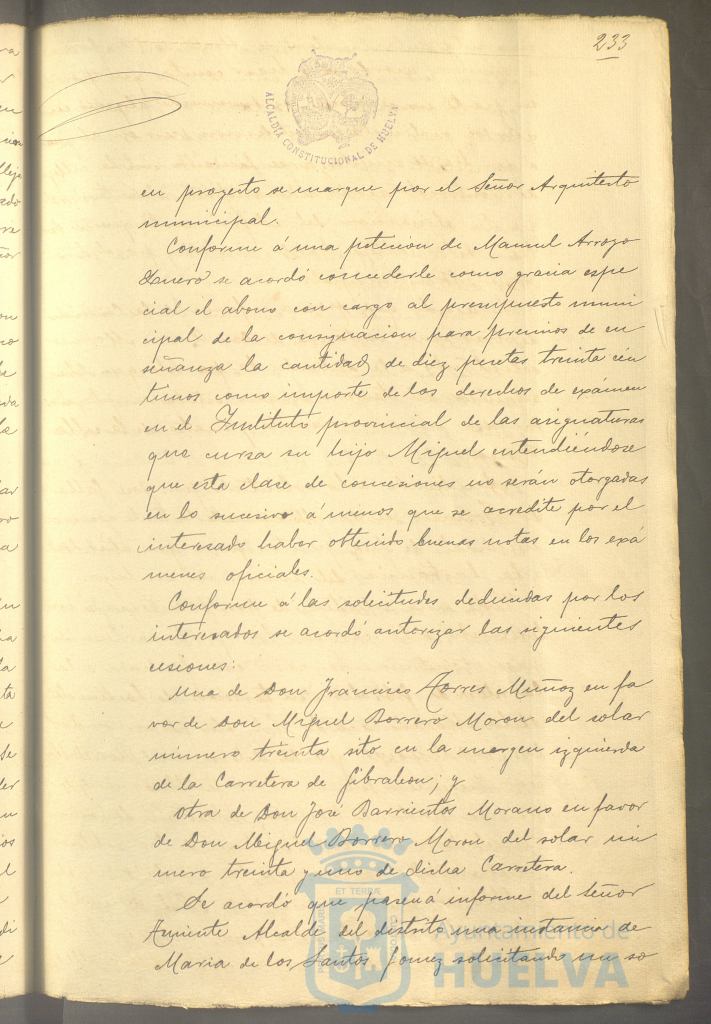 233
ALCALDÍA CONSTITUCIONAL DE HUELVA
en proyecto se marque por el Señor Arquitecto
municipal.
Conforme á una peticion de Manuel Arroyo
se acordó concederle como gracia espe
cial el abono con cargo al presupuesto muni
cipal de la consignacion para premios de en
señanza la cantidad de diez pesetas treinta cén
timos como importe de los derechos de exámen
en el Instituto provincial de las asignaturas
que cursa su hijo Miguel entendiéndose
que esta clase de concesiones no serán otorgadas
en lo sucesivo á menos que se acredite por el
interesado haber obtenido buenas notas en los exá
menes oficiales.
Conforme á las solicitudes deducidas por los
interesados se acordó autorizar las siguientes
cesiones:
Una de Don Francisco Torres Muñoz en fa
vor de Don Miguel Borrero Moron del solar
número treinta sito en la margen izquierda
de la Carretera de Gibraleon; y
Otra de Don José Barrientos Morano en favor
de Don Miguel Borrero Moron del solar nú
mero treinta y uno de dicha Carretera.
Se acordó que pase á informe del Señor
Teniente Alcalde del distrito una instancia de
Maria de los Santos Gomez solicitando un so
ET TERRÆ
Ayuntamiento de
HUELVA